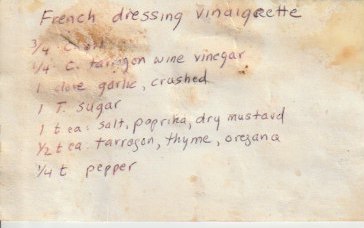 French dressing Vinaigrette
3/4 C. oil
1/4 C. tarragon wine vinegar
1 clove garlic, crushed
1 T. sugar
1 tea. salt, paprika, dry mustard
1/2 tea. tarragon, thyme, oregano
1/4 t pepper